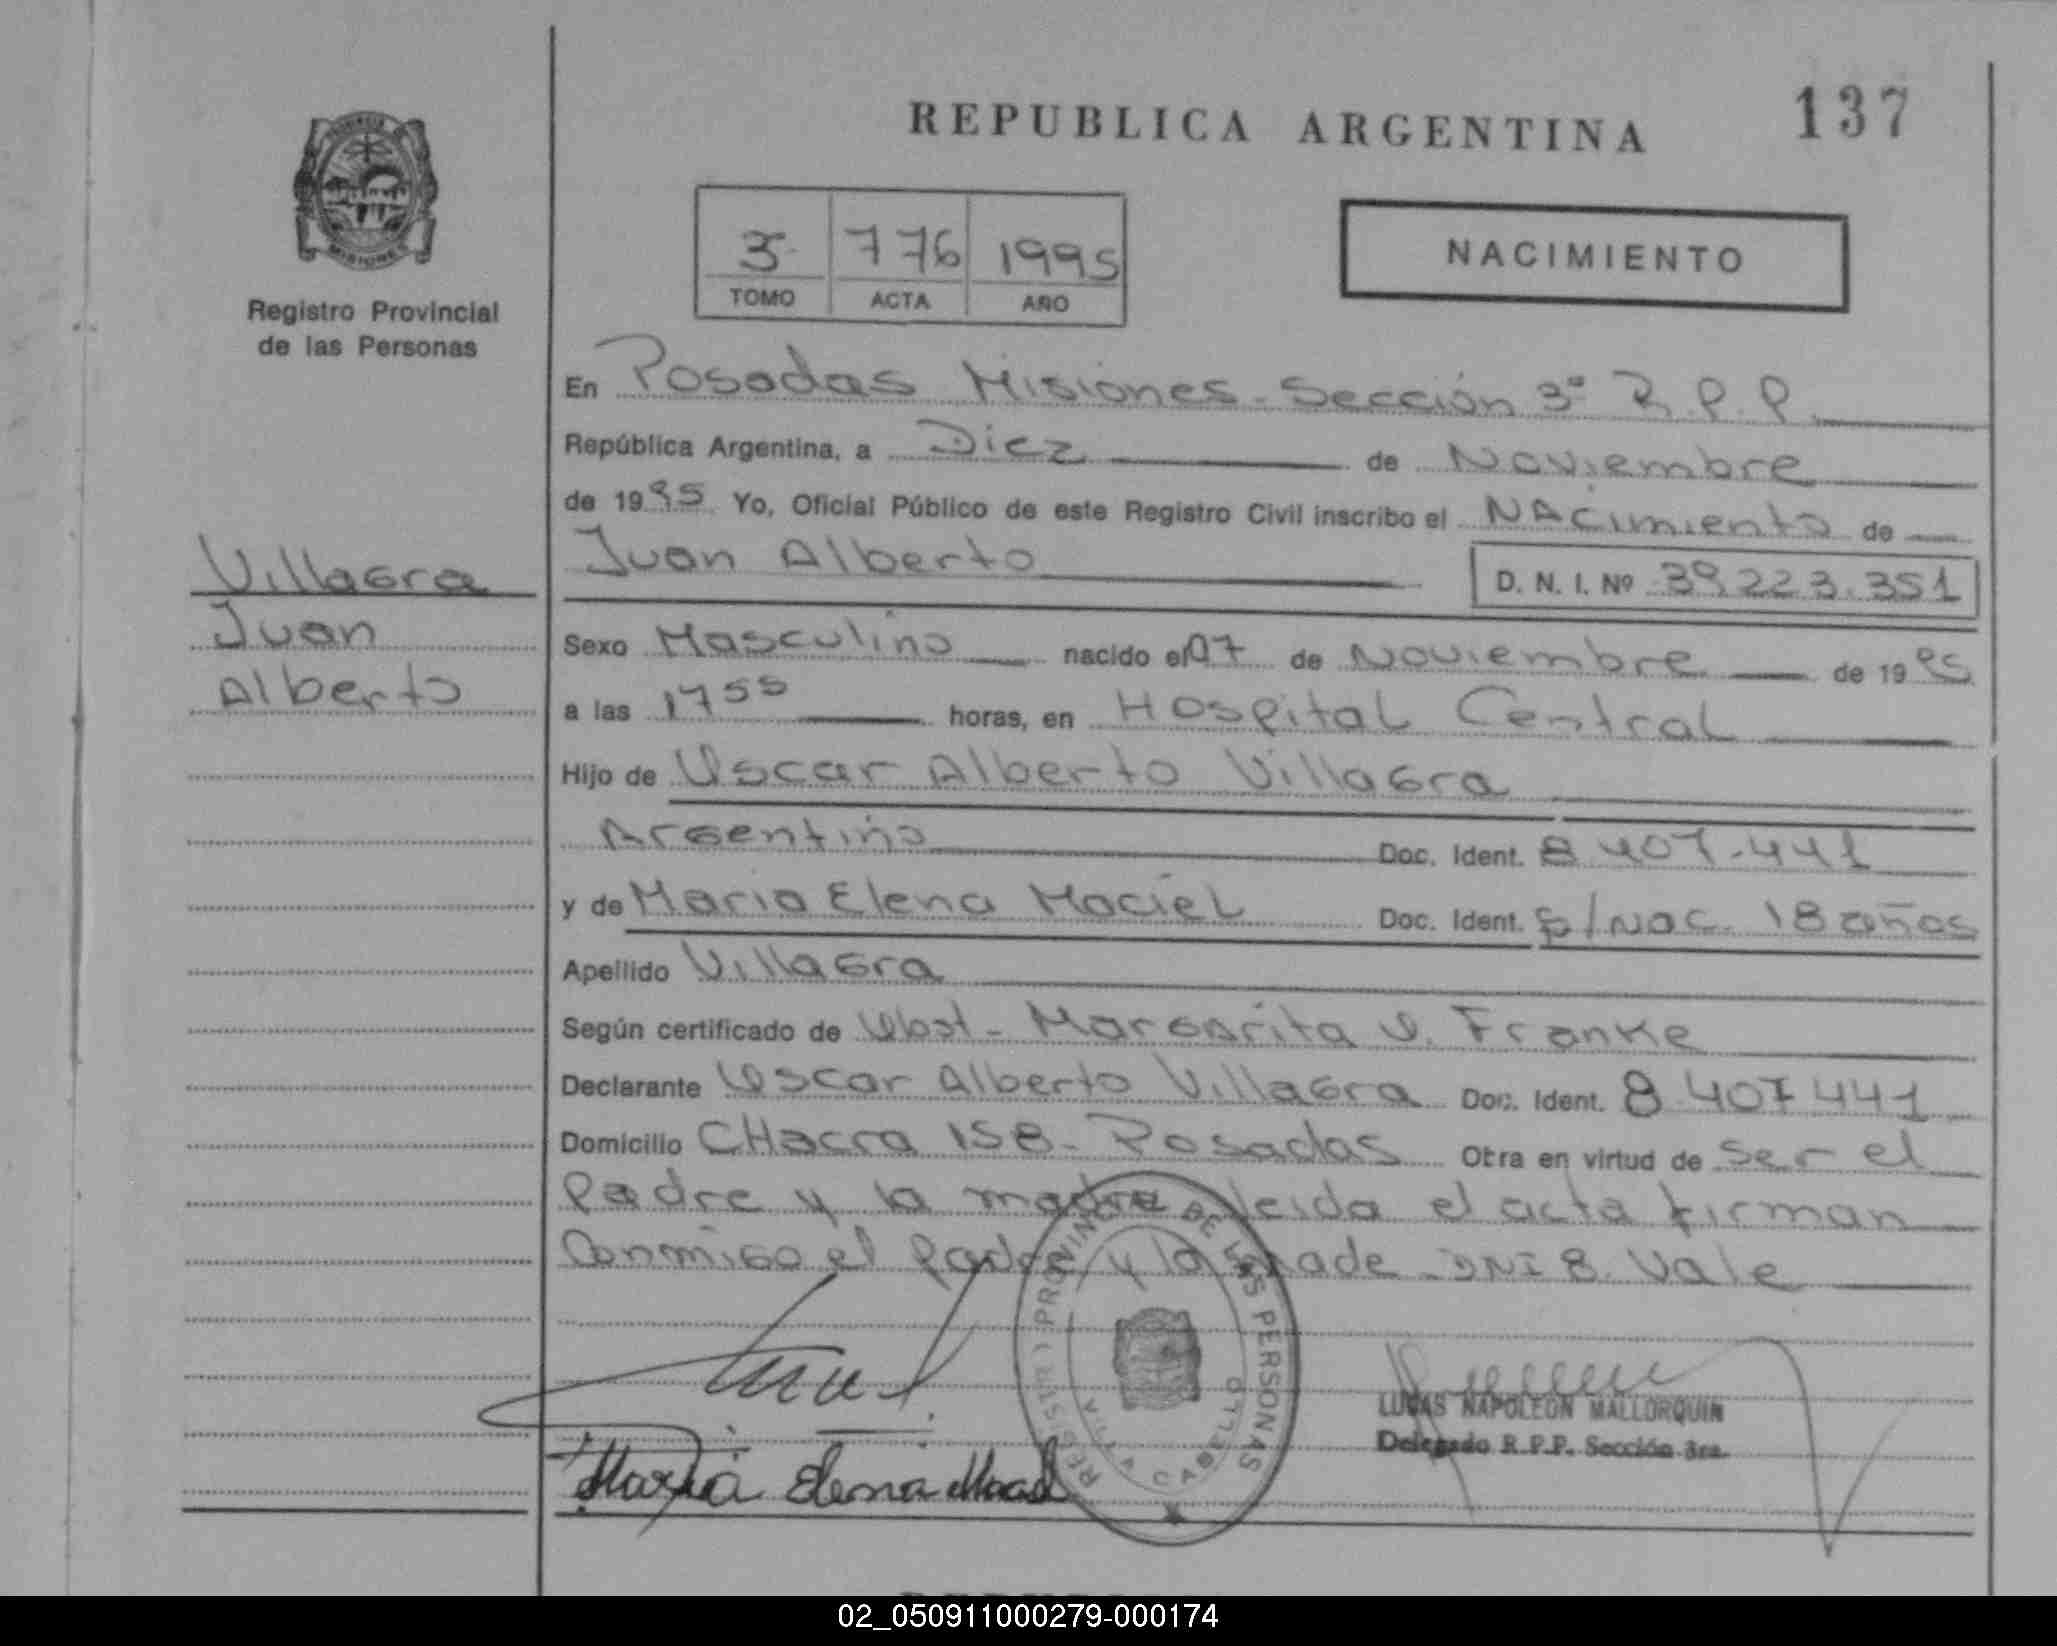 REPUBLICA ARGENTINA
137
PROVINCIA DE
MISIONES
Registro Provincial
de las Personas
3 776 1995
TOMO ACTA AÑO
NACIMIENTO
En Posadas Misiones - Sección 3ª R.P.P.
República Argentina, a Diez de Noviembre
de 1995 Yo, Oficial Público de este Registro Civil inscribo el NAcimiento de
Juan Alberto D. N. I. Nº 39.223.351
Villagra
Juan
Alberto
Sexo Masculino nacido el 07 de Noviembre de 1995
a las 17 55 horas, en Hospital Central
Hijo de Oscar Alberto Villagra
Argentino Doc. Ident. 8.407.441
y de Maria Elena Maciel Doc. Ident. Nac. 18 años
Apellido Villagra
Según certificado de Obst - Margarita O. Franke
Declarante Oscar Alberto Villagra Doc. Ident. 8.407.441
Domicilio CHacra 158 - Posadas Otra en virtud de ser el
padre y la madre leida el acta firman
Conmigo el padre y la made - DNI 8. Vale
REGISTRO PROVINCIAL DE LAS PERSONAS
VILLA CABELLO
Maria Elena Maciel
LUCAS NAPOLEON MALLORQUIN
Delegado R.P.P. Sección 3ra.
02_050911000279-000174